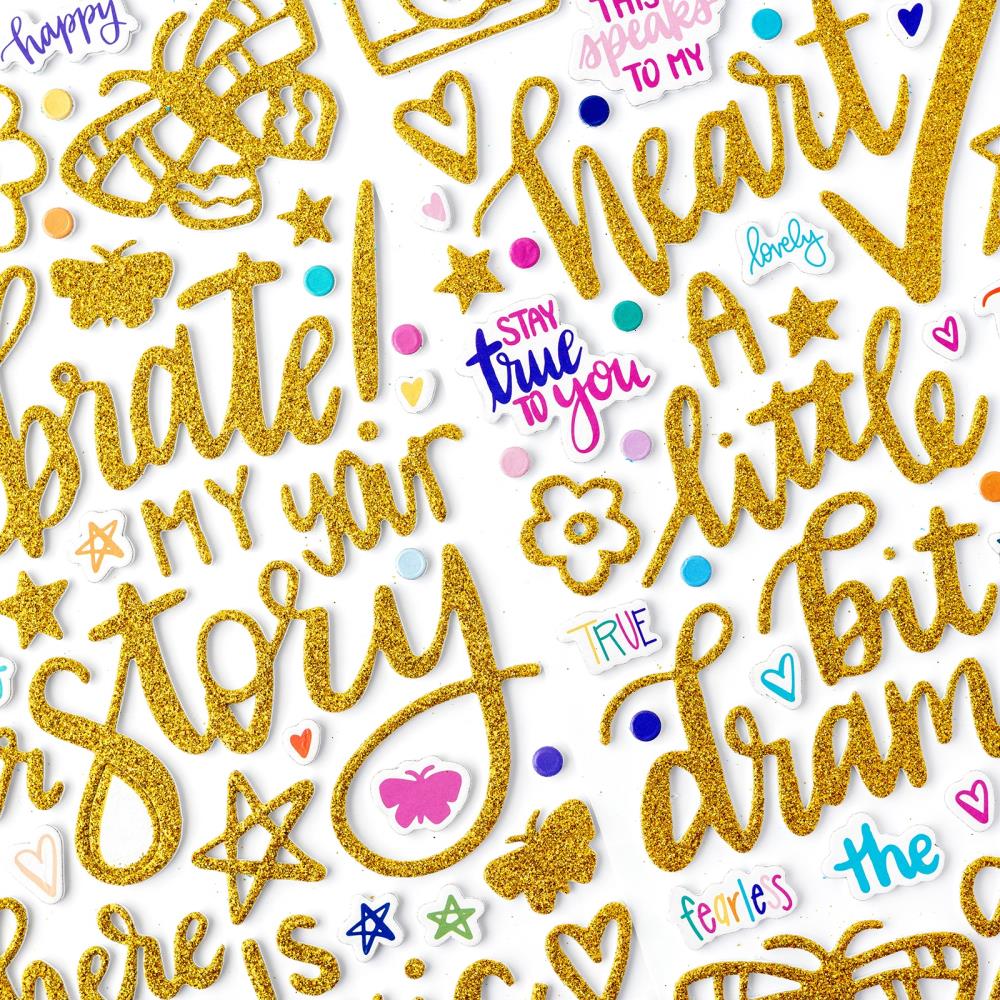 happy
THIS
speaks
TO MY
heart
lovely
brate!
STAY
true
TO you
A
little
bit
MY
story
TRUE
dram
the
fearless
here is